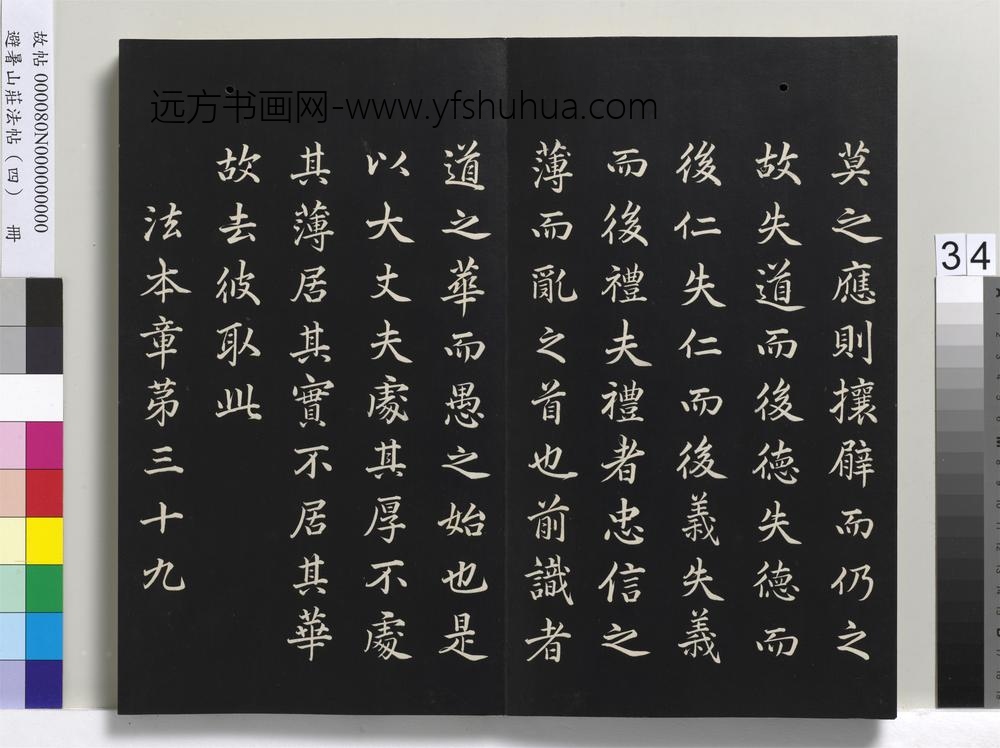 莫之應則攘臂而仍之
故失道而後徳失徳而
後仁失仁而後義失義
而後禮夫禮者忠信之
薄而亂之首也前識者
道之華而愚之始也是
以大丈夫處其厚不處
其薄居其實不居其華
故去彼取此
法本章第三十九
远方书画网-www.yfshuhua.com
故帖 000080N000000000
避暑山莊法帖（四） 冊
34